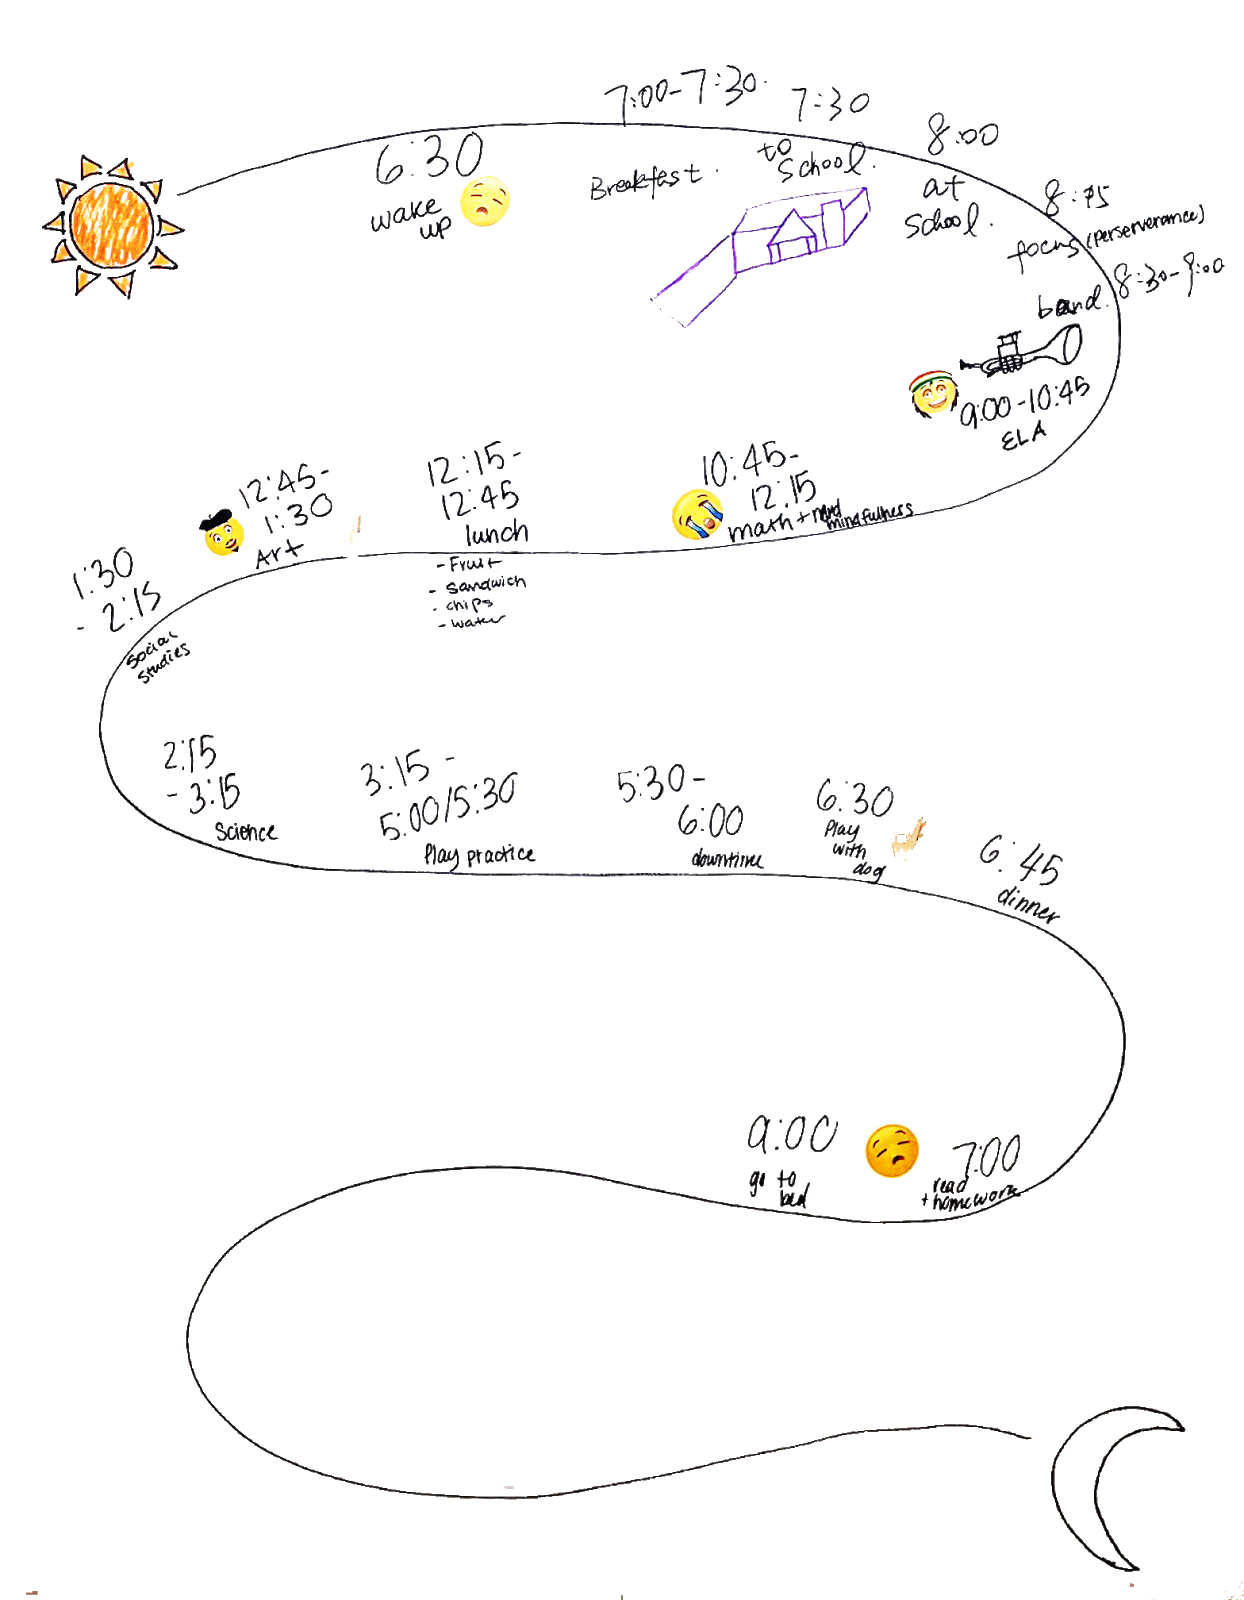 6:30
wake
up
7:00-7:30
Breakfast.
7:30
to
school.
8:00
at
school.
8:15
focus (perserverance)
8:30-9:00
band.
9:00-10:45
ELA
10:45-
12:15
math +
mindfulness
12:15-
12:45
lunch
- Fruit
- sandwich
- chips
- water
12:45-
1:30
Art
1:30
- 2:15
social
studies
2:15
- 3:15
Science
3:15 -
5:00/5:30
Play practice
5:30-
6:00
downtime
6:30
Play
with
dog
6:45
dinner
7:00
read
+ homework
9:00
go to
bed